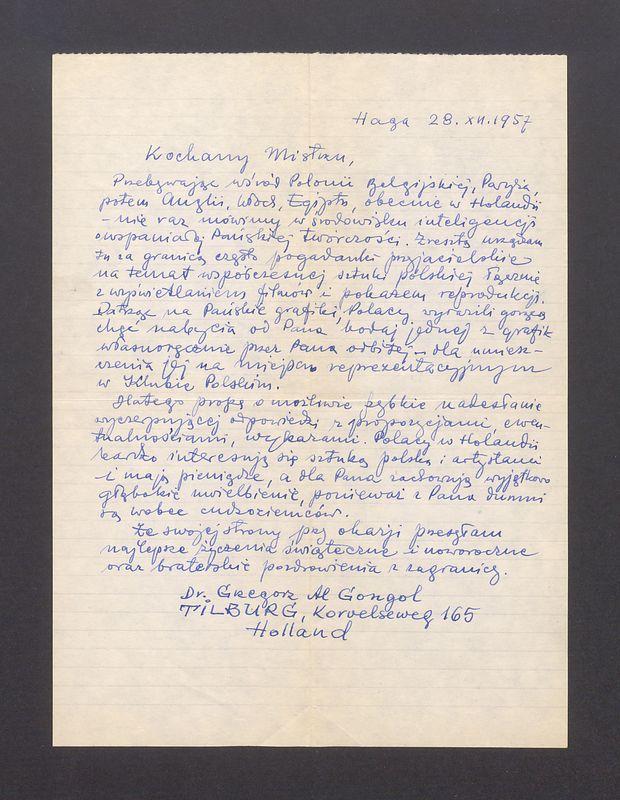 Haga 28.XII.1957
Kochany Mistrzu,
Przebywając wśród Polonii Belgijskiej, Paryża,
potem Anglii, Włoch, Egiptu, obecnie w Holandii
– nie raz mówimy w środowisku inteligencji
o wspaniałej Pańskiej twórczości. Zresztą urządzam
tu za granicą często pogadanki przyjacielskie
na temat współczesnej sztuki polskiej łącznie
z wyświetlaniem filmów i pokazem reprodukcji.
Patrząc na Pańskie grafiki, Polacy wyrazili gorącą
chęć nabycia od Pana bodaj jednej z grafik
własnoręcznie przez Pana odbitej – dla umiesz-
czenia jej na miejscu reprezentacyjnym
w Klubie Polskim.
Dlatego proszę o możliwie szybkie nadesłanie
wyczerpującej odpowiedzi z propozycjami, ewen-
tualnościami, wykazami. Polacy w Holandii
bardzo interesują się sztuką polską i artystami
– i mają pieniądze, a dla Pana zachowują wyjątkowo
głębokie uwielbienie, ponieważ z Pana dumni
są wobec cudzoziemców.
Ze swojej strony przy okazji przesyłam
najlepsze życzenia świąteczne i noworoczne
oraz braterskie pozdrowienia z zagranicy.
Dr. Grzegorz Al Gongol
TILBURG, Korvelseweg 165
Holland